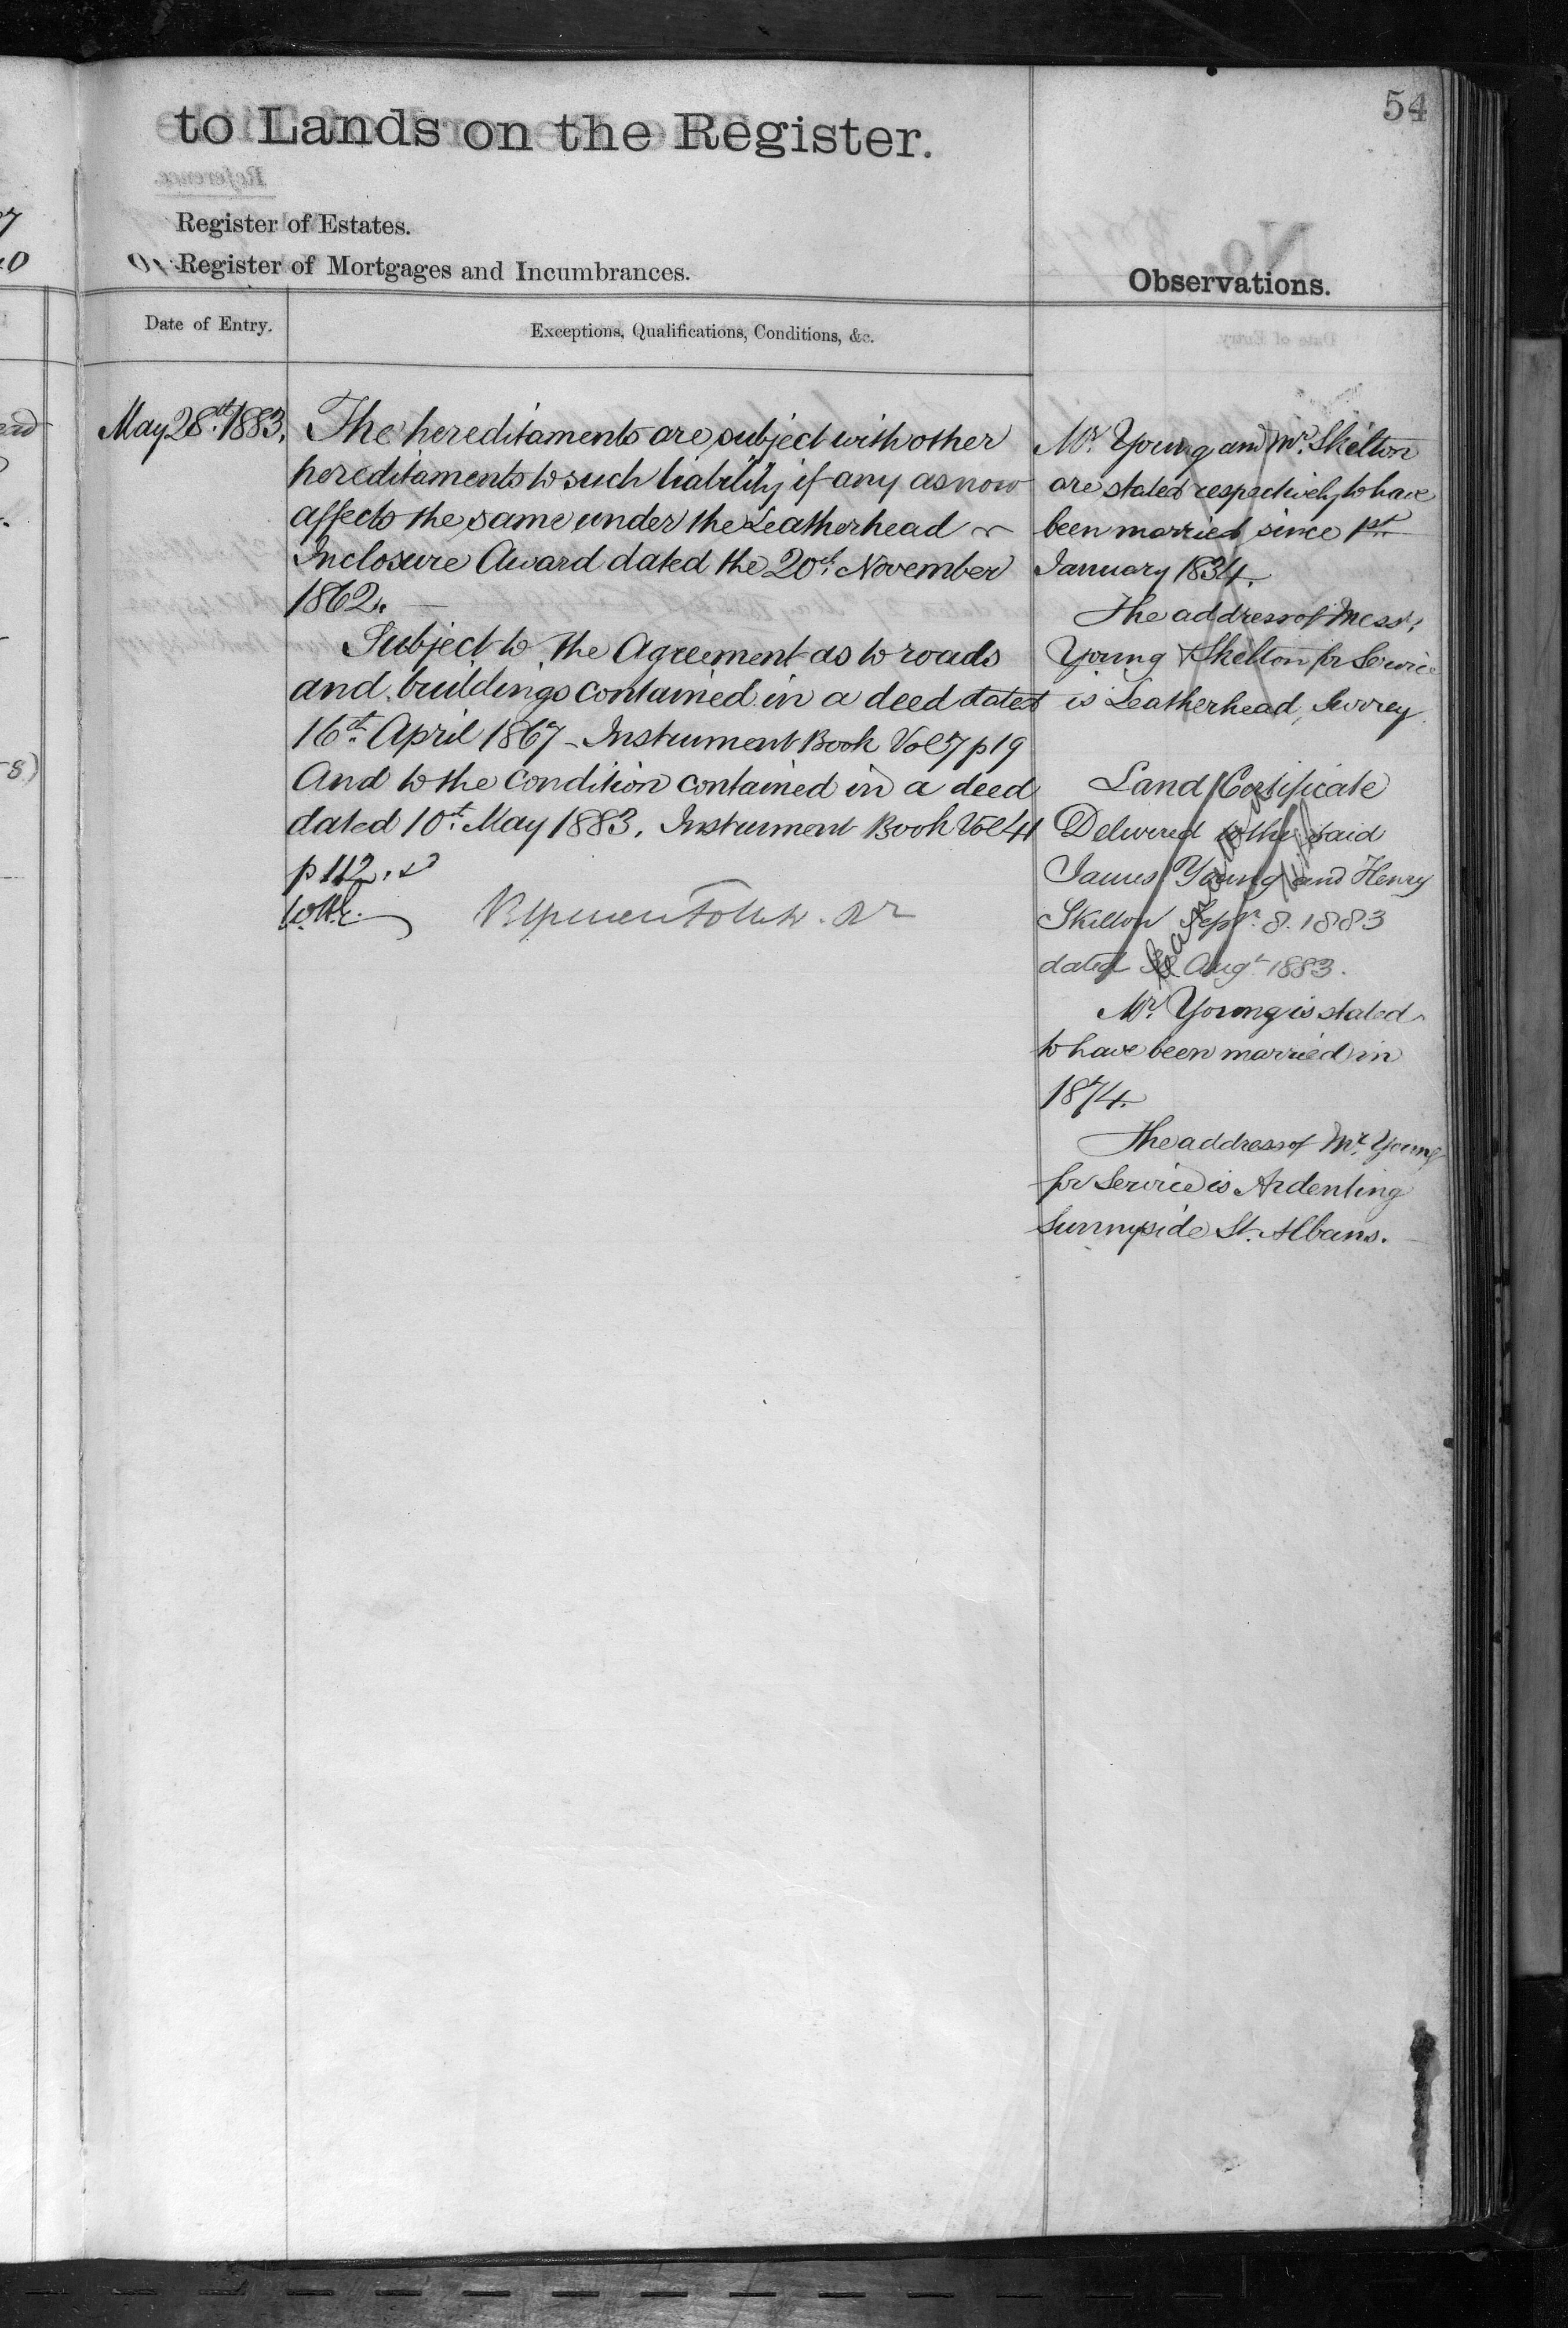 54
to Lands on the Register.
Register of Estates.
Register of Mortgages and Incumbrances.
Observations.
Date of Entry.
Exceptions, Qualifications, Conditions, &c.
May 28th 1883.
The hereditaments are subject with other
hereditaments to such liability if any as now
affects the same under the Leatherhead
Inclosure Award dated the 20th November
1862.
Subject to the Agreement as to roads
and buildings contained in a deed dated
16th April 1867 - Instrument Book Vol 7 p 19
And to the condition contained in a deed
dated 10th May 1883. Instrument Book Vol 41
p 112.
Mr. Young and Mr. Skelton
are stated respectively to have
been married since 1st
January 1834.
The address of Messrs
Young & Skelton for Service
is Leatherhead, Surrey.
Land Certificate
Delivered to the said
James Young and Henry
Skelton Sepr. 8. 1883
dated Augt 1883.
Mr. Young is stated
to have been married in
1874.
The address of Mr. Young
for Service is Ardenting
Sunnyside St. Albans.